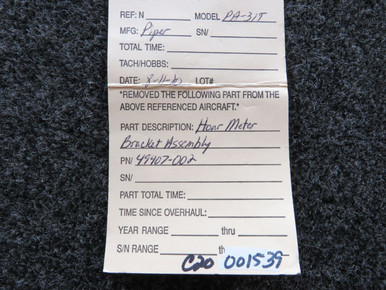 REF: N MODEL PA-31T
MFG: Piper SN/
TOTAL TIME:
TACH/HOBBS:
DATE: LOT#
*REMOVED THE FOLLOWING PART FROM THE
ABOVE REFERENCED AIRCRAFT.*
PART DESCRIPTION: Hour Meter
Bracket Assembly
PN/ 49907-002
SN/
PART TOTAL TIME:
TIME SINCE OVERHAUL:
YEAR RANGE thru
S/N RANGE th
C20 001539